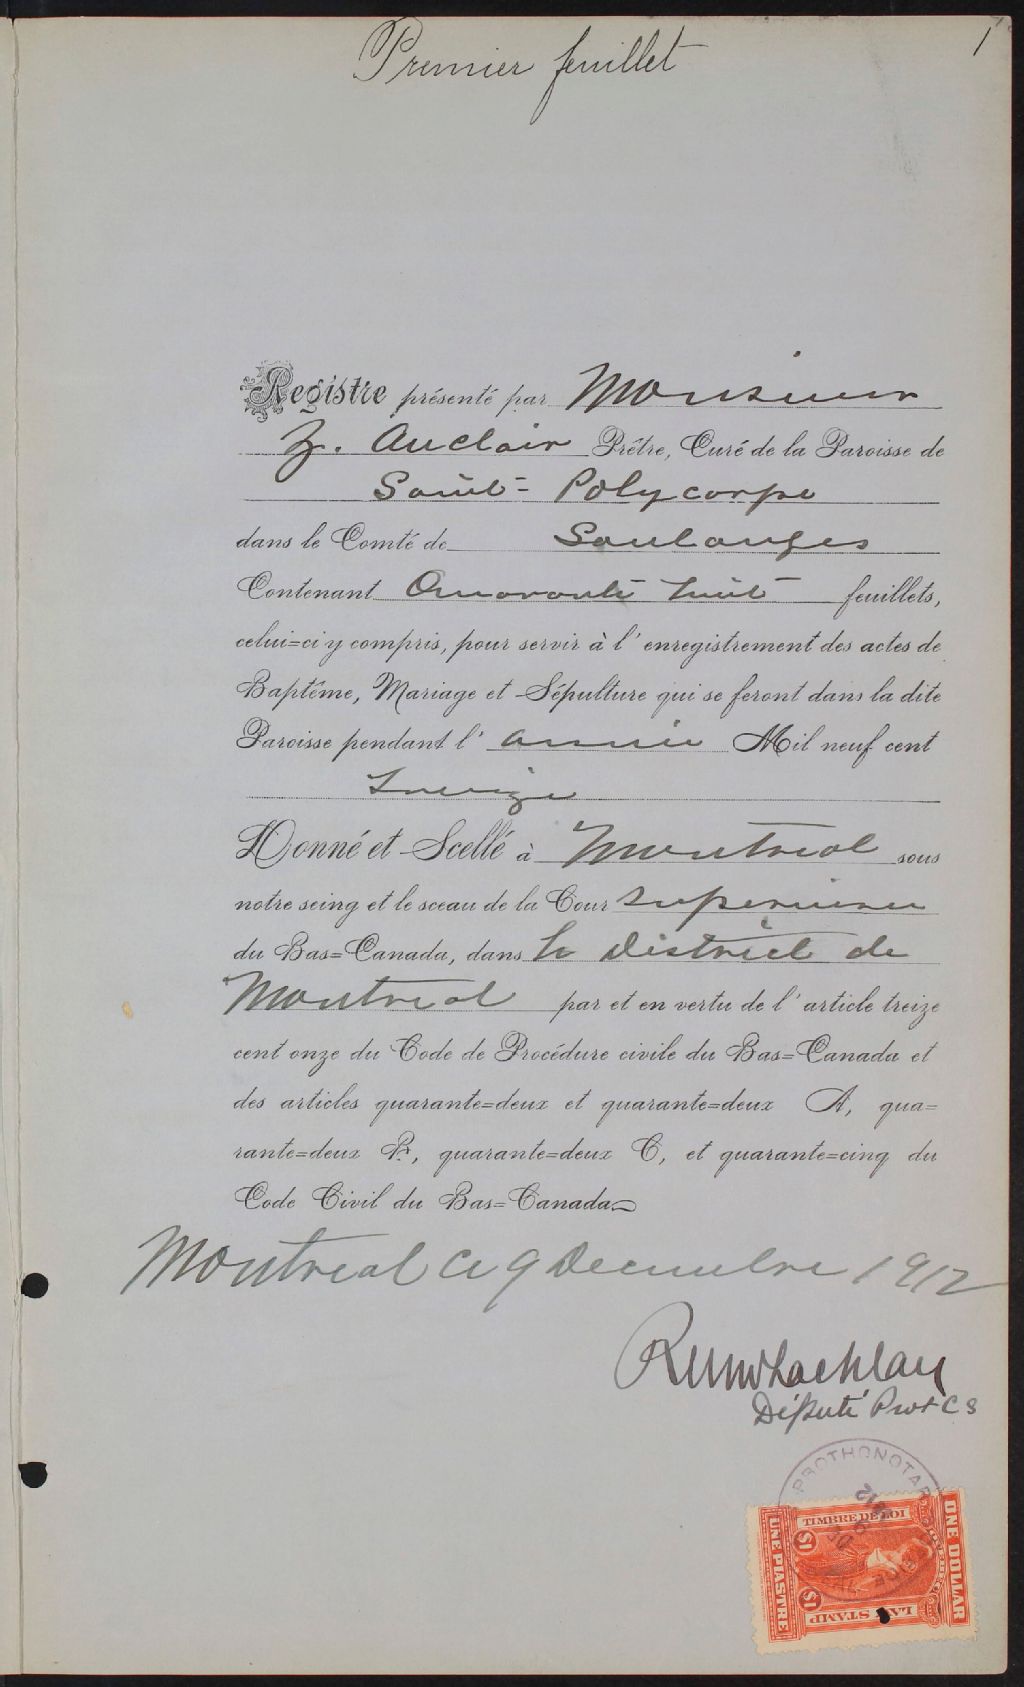 Premier feuillet
1
Registre présenté par Monsieur
Z. Auclair Prêtre, Curé de la Paroisse de
Saint-Polycarpe
dans le Comté de Soulanges
Contenant Quarante huit feuillets,
celui=ci y compris, pour servir à l'enregistrement des actes de
Baptême, Mariage et Sépulture qui se feront dans la dite
Paroisse pendant l'année Mil neuf cent
treize
Donné et Scellé à Montréal sous
notre seing et le sceau de la Cour Supérieure
du Bas=Canada, dans le district de
Montréal par et en vertu de l'article treize
cent onze du Code de Procédure civile du Bas=Canada et
des articles quarante=deux et quarante=deux A, qua=
rante=deux B, quarante=deux C, et quarante=cinq du
Code Civil du Bas=Canada
Montréal ce 9 Decembre 1912
Député Prot C S
PROTHONOTAR
9
1912
TIMBRE DE LOI
UNE PIASTRE
ONE DOLLAR
$1
$1
LAW STAMP